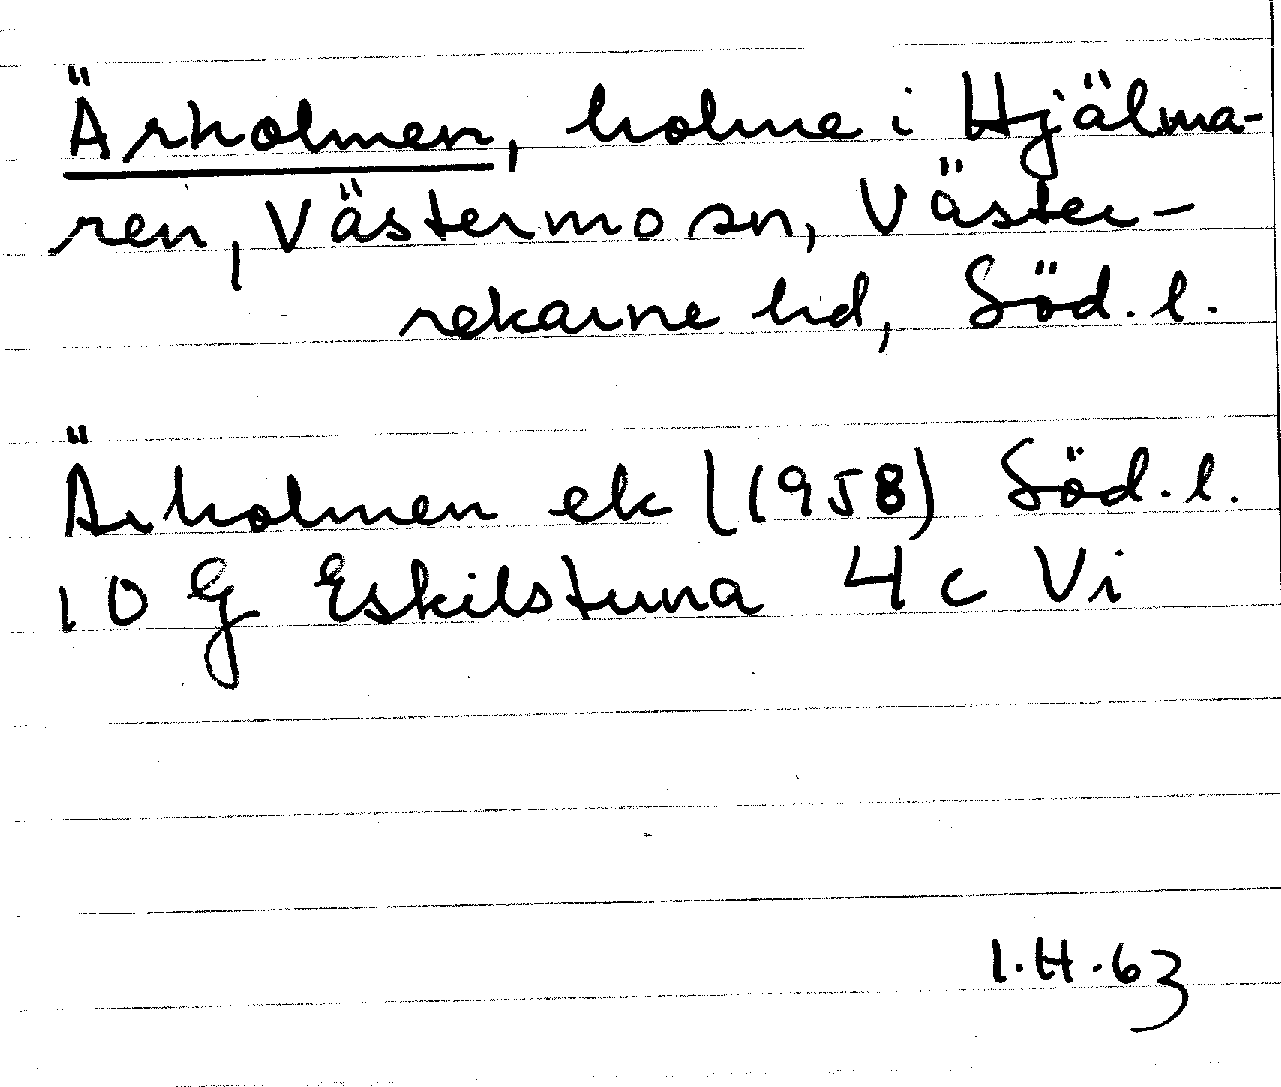 Ärholmen, holme i Hjälma-
ren, Västermo sn, Väster-
rekarne hd, Söd. l.
Ärholmen ek (1958) Söd. l.
10 G Eskilstuna 4 c Vi
I.H.63